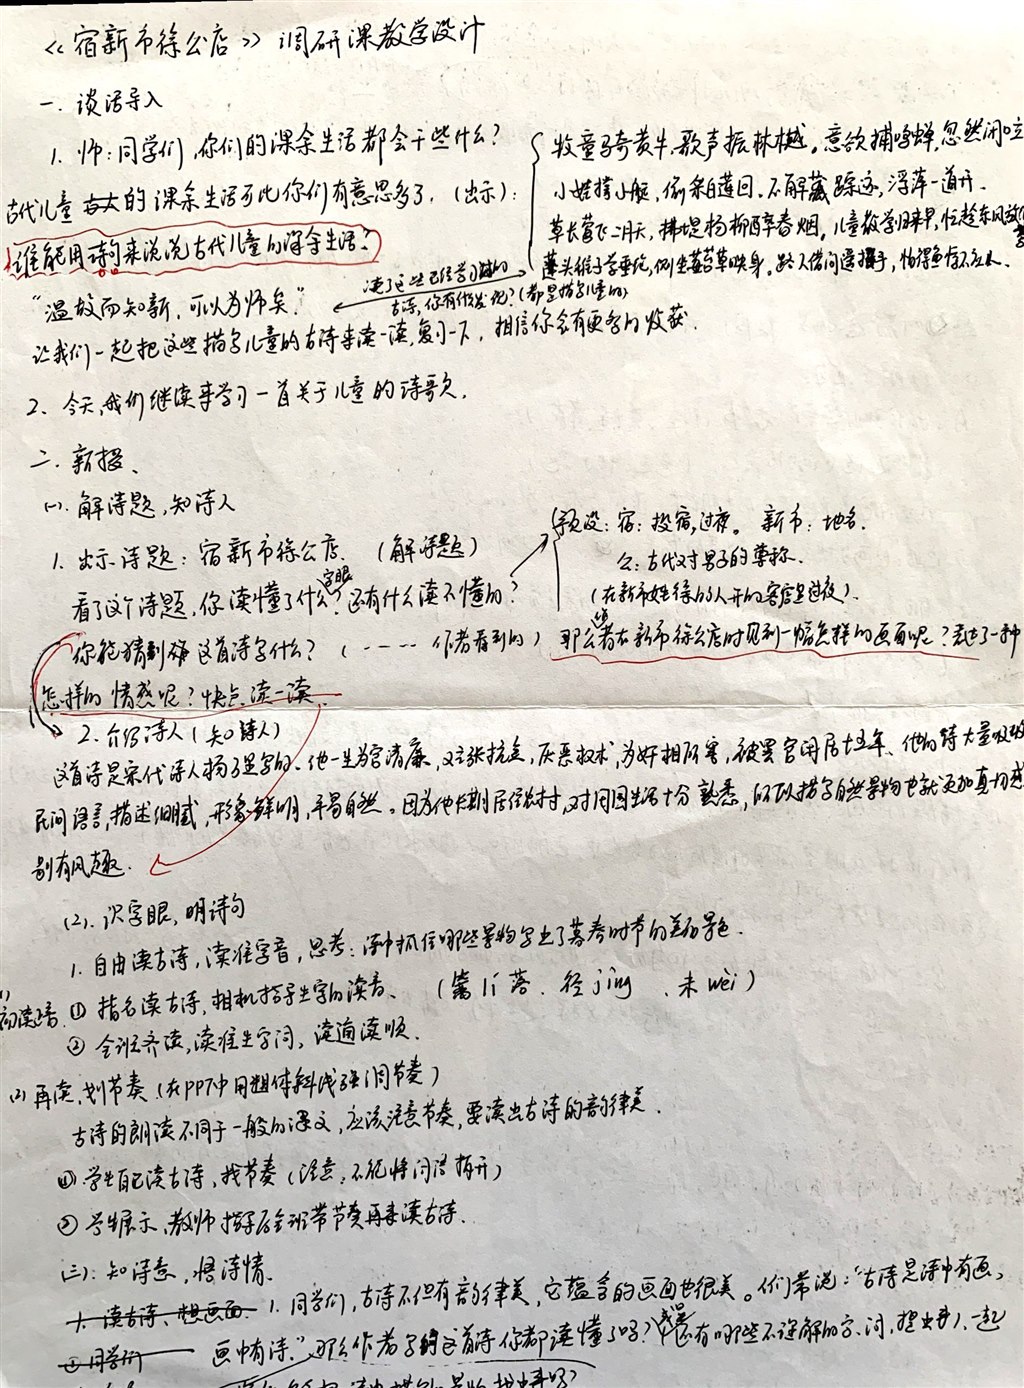 《宿新市徐公店》调研课教学设计
一. 谈话导入
1. 师:同学们,你们的课余生活都会干些什么?
古代儿童的课余生活可比你们有意思多了. (出示):
牧童骑黄牛,歌声振林樾。意欲捕鸣蝉,忽然闭口立
小娃撑小艇,偷采白莲回。不解藏踪迹,浮萍一道开.
草长莺飞二月天,拂堤杨柳醉春烟。儿童散学归来早,忙趁东风放
蓬头稚子学垂纶,侧坐莓苔草映身。路人借问遥招手,怕得鱼惊不应人.
谁能用诗句来说说古代儿童的课余生活?
读了这些已经学过的
古诗,你有什么发现?(都是描写儿童的)
“温故而知新,可以为师矣.”
让我们一起把这些描写儿童的古诗来读一读,复习一下,相信你会有更多的收获.
2. 今天,我们继续来学习一首关于儿童的诗歌.
二. 新授、
(一). 解诗题,知诗人
1. 出示诗题:宿新市徐公店. (解诗题)
看了这个诗题,你读懂了什么?还有什么读不懂的?
字眼
预设:宿:投宿,过夜。 新市:地名.
公:古代对男子的尊称.
(在新市姓徐的人开的客店里过夜).
你能猜到 这首诗写什么? (---- 作者看到的)
那么作者在新市徐公店时见到一幅怎样的画面呢?表达了一种
怎样的情感呢?快点读一读.
2. 介绍诗人(知诗人)
这首诗是宋代诗人杨万里写的. 他一生为官清廉,力主张抗金,厌恶权术,为奸相所害,被罢官闲居十五年. 他的诗大量吸收
民间语言,描述细腻,形象鲜明,平易自然. 因为他长期居住农村,对田园生活十分熟悉,所以描写自然景物也就更加真切感
别有风趣.
(2). 识字眼,明诗句
1. 自由读古诗,读准字音,思考:诗中抓住哪些景物写出了暮春时节的美丽景色.
(1)初读正音. ① 指名读古诗,相机指导生字的读音、 (篱lí落、径jìng 、未wèi)
② 全班齐读,读准生字词,读通读顺.
(2) 再读,划节奏(在PPT中用粗体斜线强调节奏)
古诗的朗读不同于一般的课文,应该注意节奏,要读出古诗的韵律美.
① 学生自己读古诗,找节奏(注意:不能将词语拆开)
② 学生展示,教师指导后全班带节奏再来读古诗.
(三):知诗意,悟诗情.
1. 读古诗、想画面 1. 同学们,古诗不但有韵律美,它蕴含的画面也很美。人们常说:“古诗是诗中有画,
①同学们 画中有诗.”那么作者写的这首诗你都读懂了吗?还有哪些不理解的字、词,提出来,一起